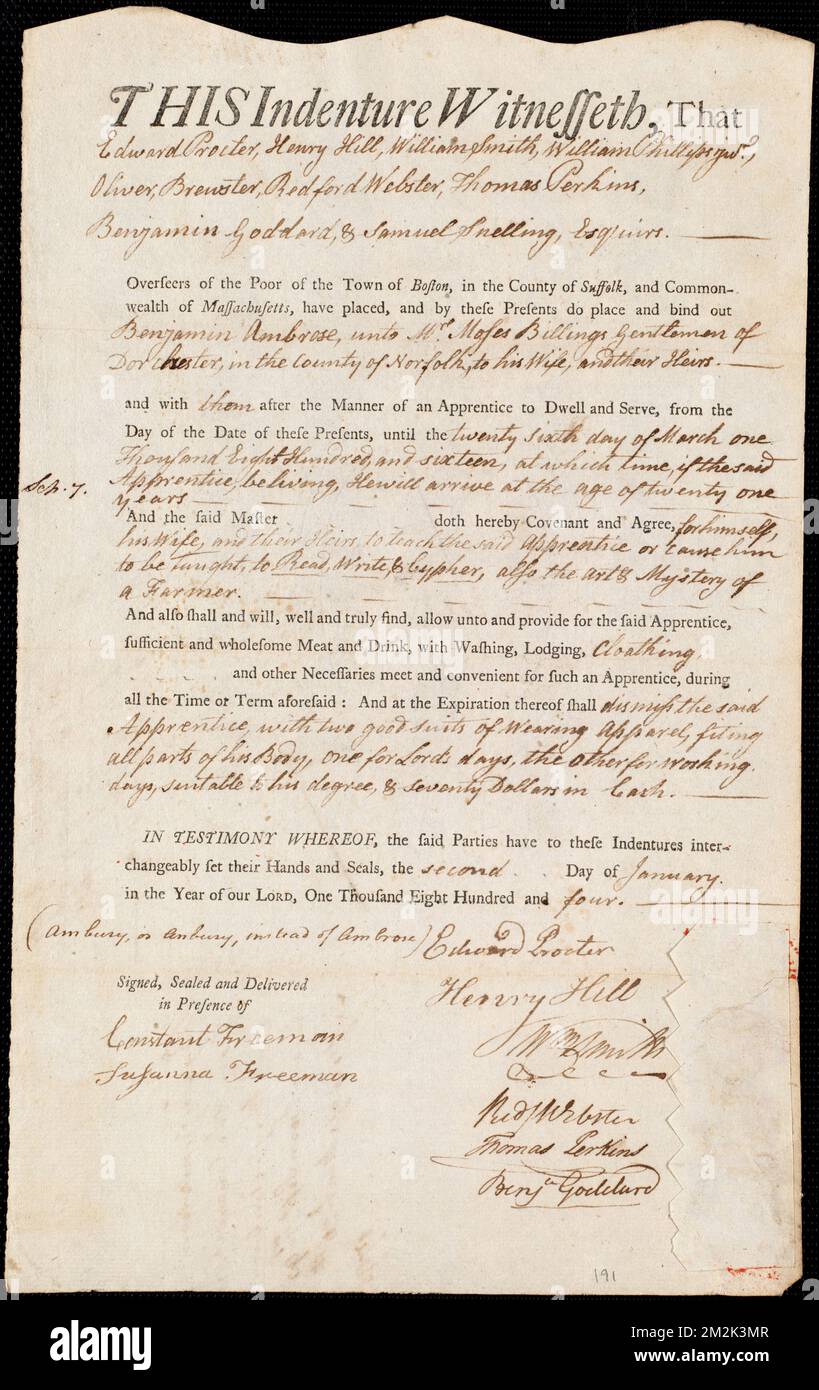 THIS Indenture Witnesseth, That
Edward Procter, Henry Hill, William Smith, William Phillips junr.,
Oliver, Brewster, Redford Webster, Thomas Perkins,
Benjamin Goddard, & Samuel Snelling, Esquires.
Overseers of the Poor of the Town of Boston, in the County of Suffolk, and Common-
wealth of Massachusetts, have placed, and by these Presents do place and bind out
Benjamin Ambrose, unto Mr. Moses Billings Gentlemen of
Dorchester, in the County of Norfolk, to his Wife, and their Heirs.
and with them after the Manner of an Apprentice to Dwell and Serve, from the
Day of the Date of these Presents, until the twenty sixth day of March one
Thousand Eight Hundred, and sixteen, at which time, if the said
Apprentice, be living, He will arrive at the age of twenty one
years
And the said Master doth hereby Covenant and Agree, for himself,
his Wife, and their Heirs, to teach the said Apprentice or cause him
to be taught, to Read, Write, & Cypher, also the art & Mystery of
a Farmer.
And also shall and will, well and truly find, allow unto and provide for the said Apprentice,
sufficient and wholesome Meat and Drink, with Washing, Lodging, Cloathing,
and other Necessaries meet and convenient for such an Apprentice, during
all the Time or Term aforesaid : And at the Expiration thereof shall dismiss the said
Apprentice, with two good suits of Wearing Apparel, fiting
all parts of his Body, one for Lords days, the other for working
days, suitable to his degree, & seventy Dollars in Cash.
IN TESTIMONY WHEREOF, the said Parties have to these Indentures inter-
changeably set their Hands and Seals, the second Day of January.
in the Year of our LORD, One Thousand Eight Hundred and four.
(Ambury, or Anbury, instead of Ambrose) Edward Procter
Signed, Sealed and Delivered
in Presence of
Henry Hill
Constant Freeman
Wm Smith
Susanna Freeman
Redf Webster
Thomas Perkins
Benja Goddard
191
alamy
Image ID: 2M2K3MR
www.alamy.com